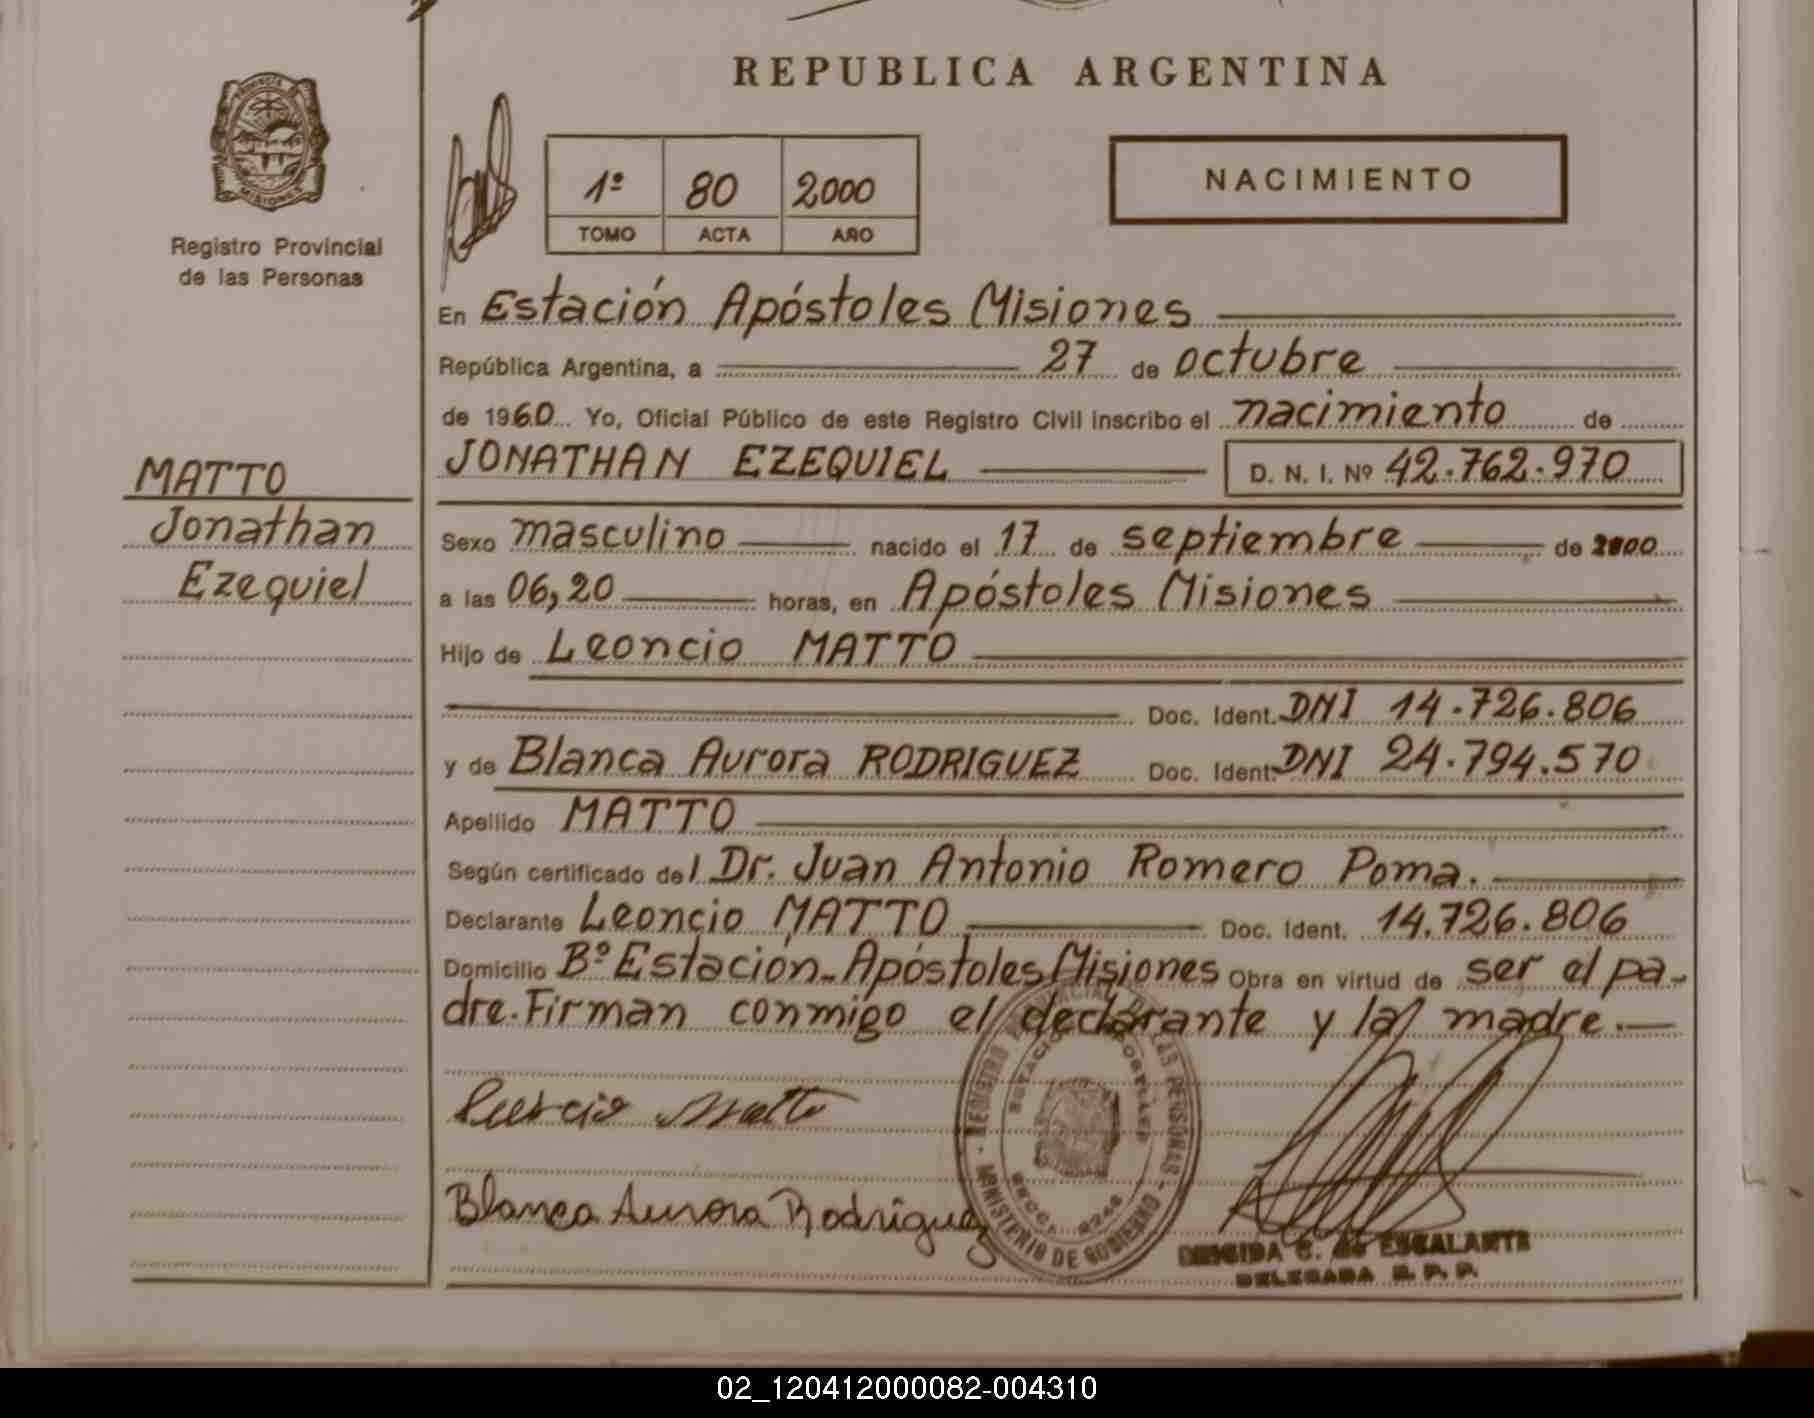 REPUBLICA ARGENTINA
PROVINCIA
MISIONES
Registro Provincial
de las Personas
1º 80 2000
TOMO ACTA AÑO
NACIMIENTO
En Estación Apóstoles Misiones
República Argentina, a 27 de octubre
de 1960 Yo, Oficial Público de este Registro Civil inscribo el nacimiento de
JONATHAN EZEQUIEL D. N. I. Nº 42.762.970
MATTO
Jonathan
Ezequiel
Sexo masculino nacido el 17 de septiembre de 2000
a las 06,20 horas, en Apóstoles Misiones
Hijo de Leoncio MATTO
Doc. Ident. DNI 14.726.806
y de Blanca Aurora RODRIGUEZ Doc. Ident. DNI 24.794.570
Apellido MATTO
Según certificado del Dr. Juan Antonio Romero Poma.
Declarante Leoncio MATTO Doc. Ident. 14.726.806
Domicilio Bº Estación-Apóstoles Misiones Obra en virtud de ser el pa-
dre. Firman conmigo el declarante y la madre.
REGISTRO PROVINCIAL DE LAS PERSONAS
MINISTERIO DE GOBIERNO
Matto
Blanca Aurora Rodriguez
C. de ESCALANTE
DELEGADA R. P. P.
02_120412000082-004310